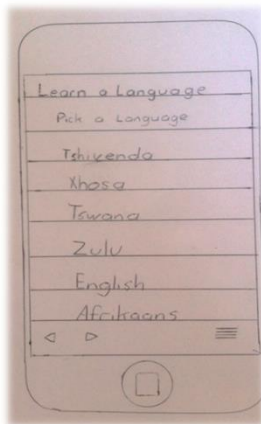 Learn a Language
Pick a Language
Tshivenda
Xhosa
Tswana
Zulu
English
Afrikaans